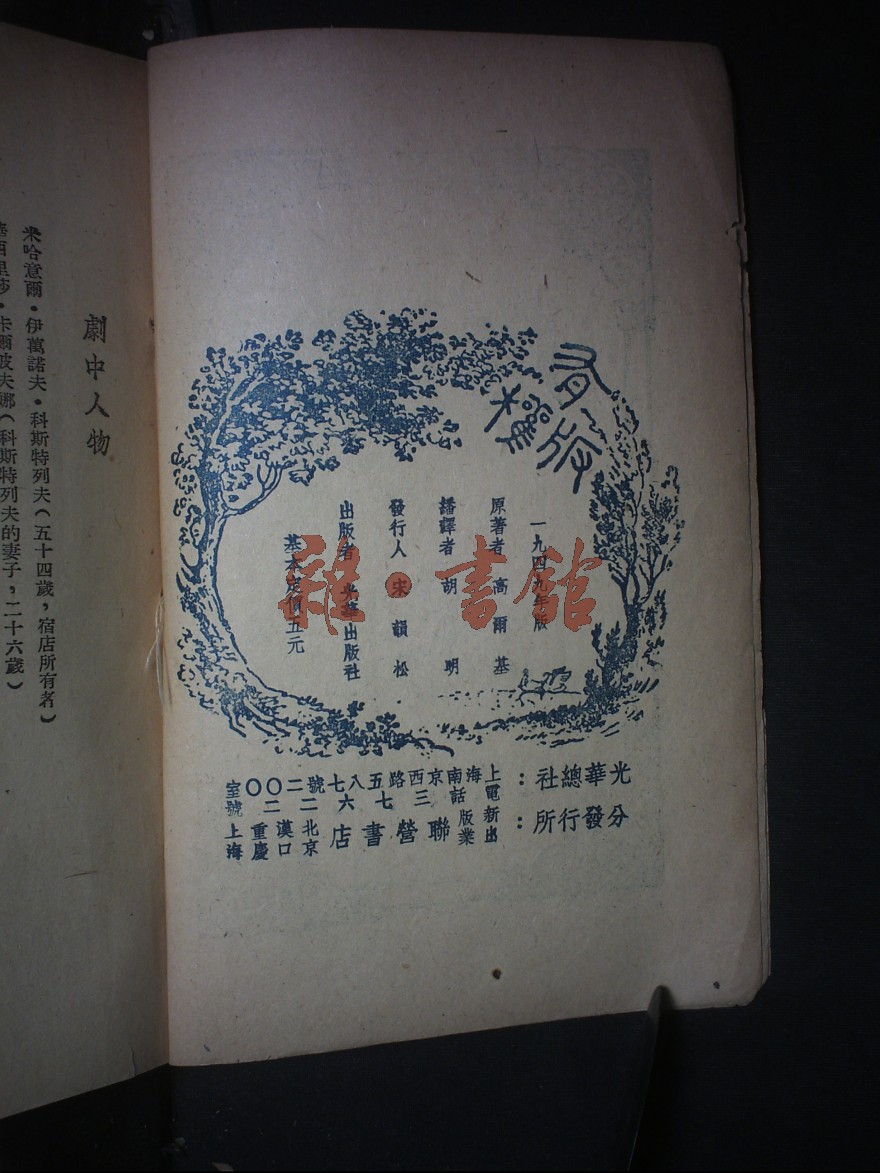 有版權
一九四九年版
原著者 高爾基
繙譯者 胡明
發行人 宋韻松
出版者 光華出版社
基本定價五元
光華總社：上海南京西路五八七號二〇〇室
電話三七六二二號
分發行所：新出版業聯營書店
北京 漢口 重慶 上海
劇中人物
米哈意爾・伊萬諾夫・科斯特列夫（五十四歲，宿店所有者）
西里莎・卡爾波夫娜（科斯特列夫的妻子，二十六歲）
雜・書館